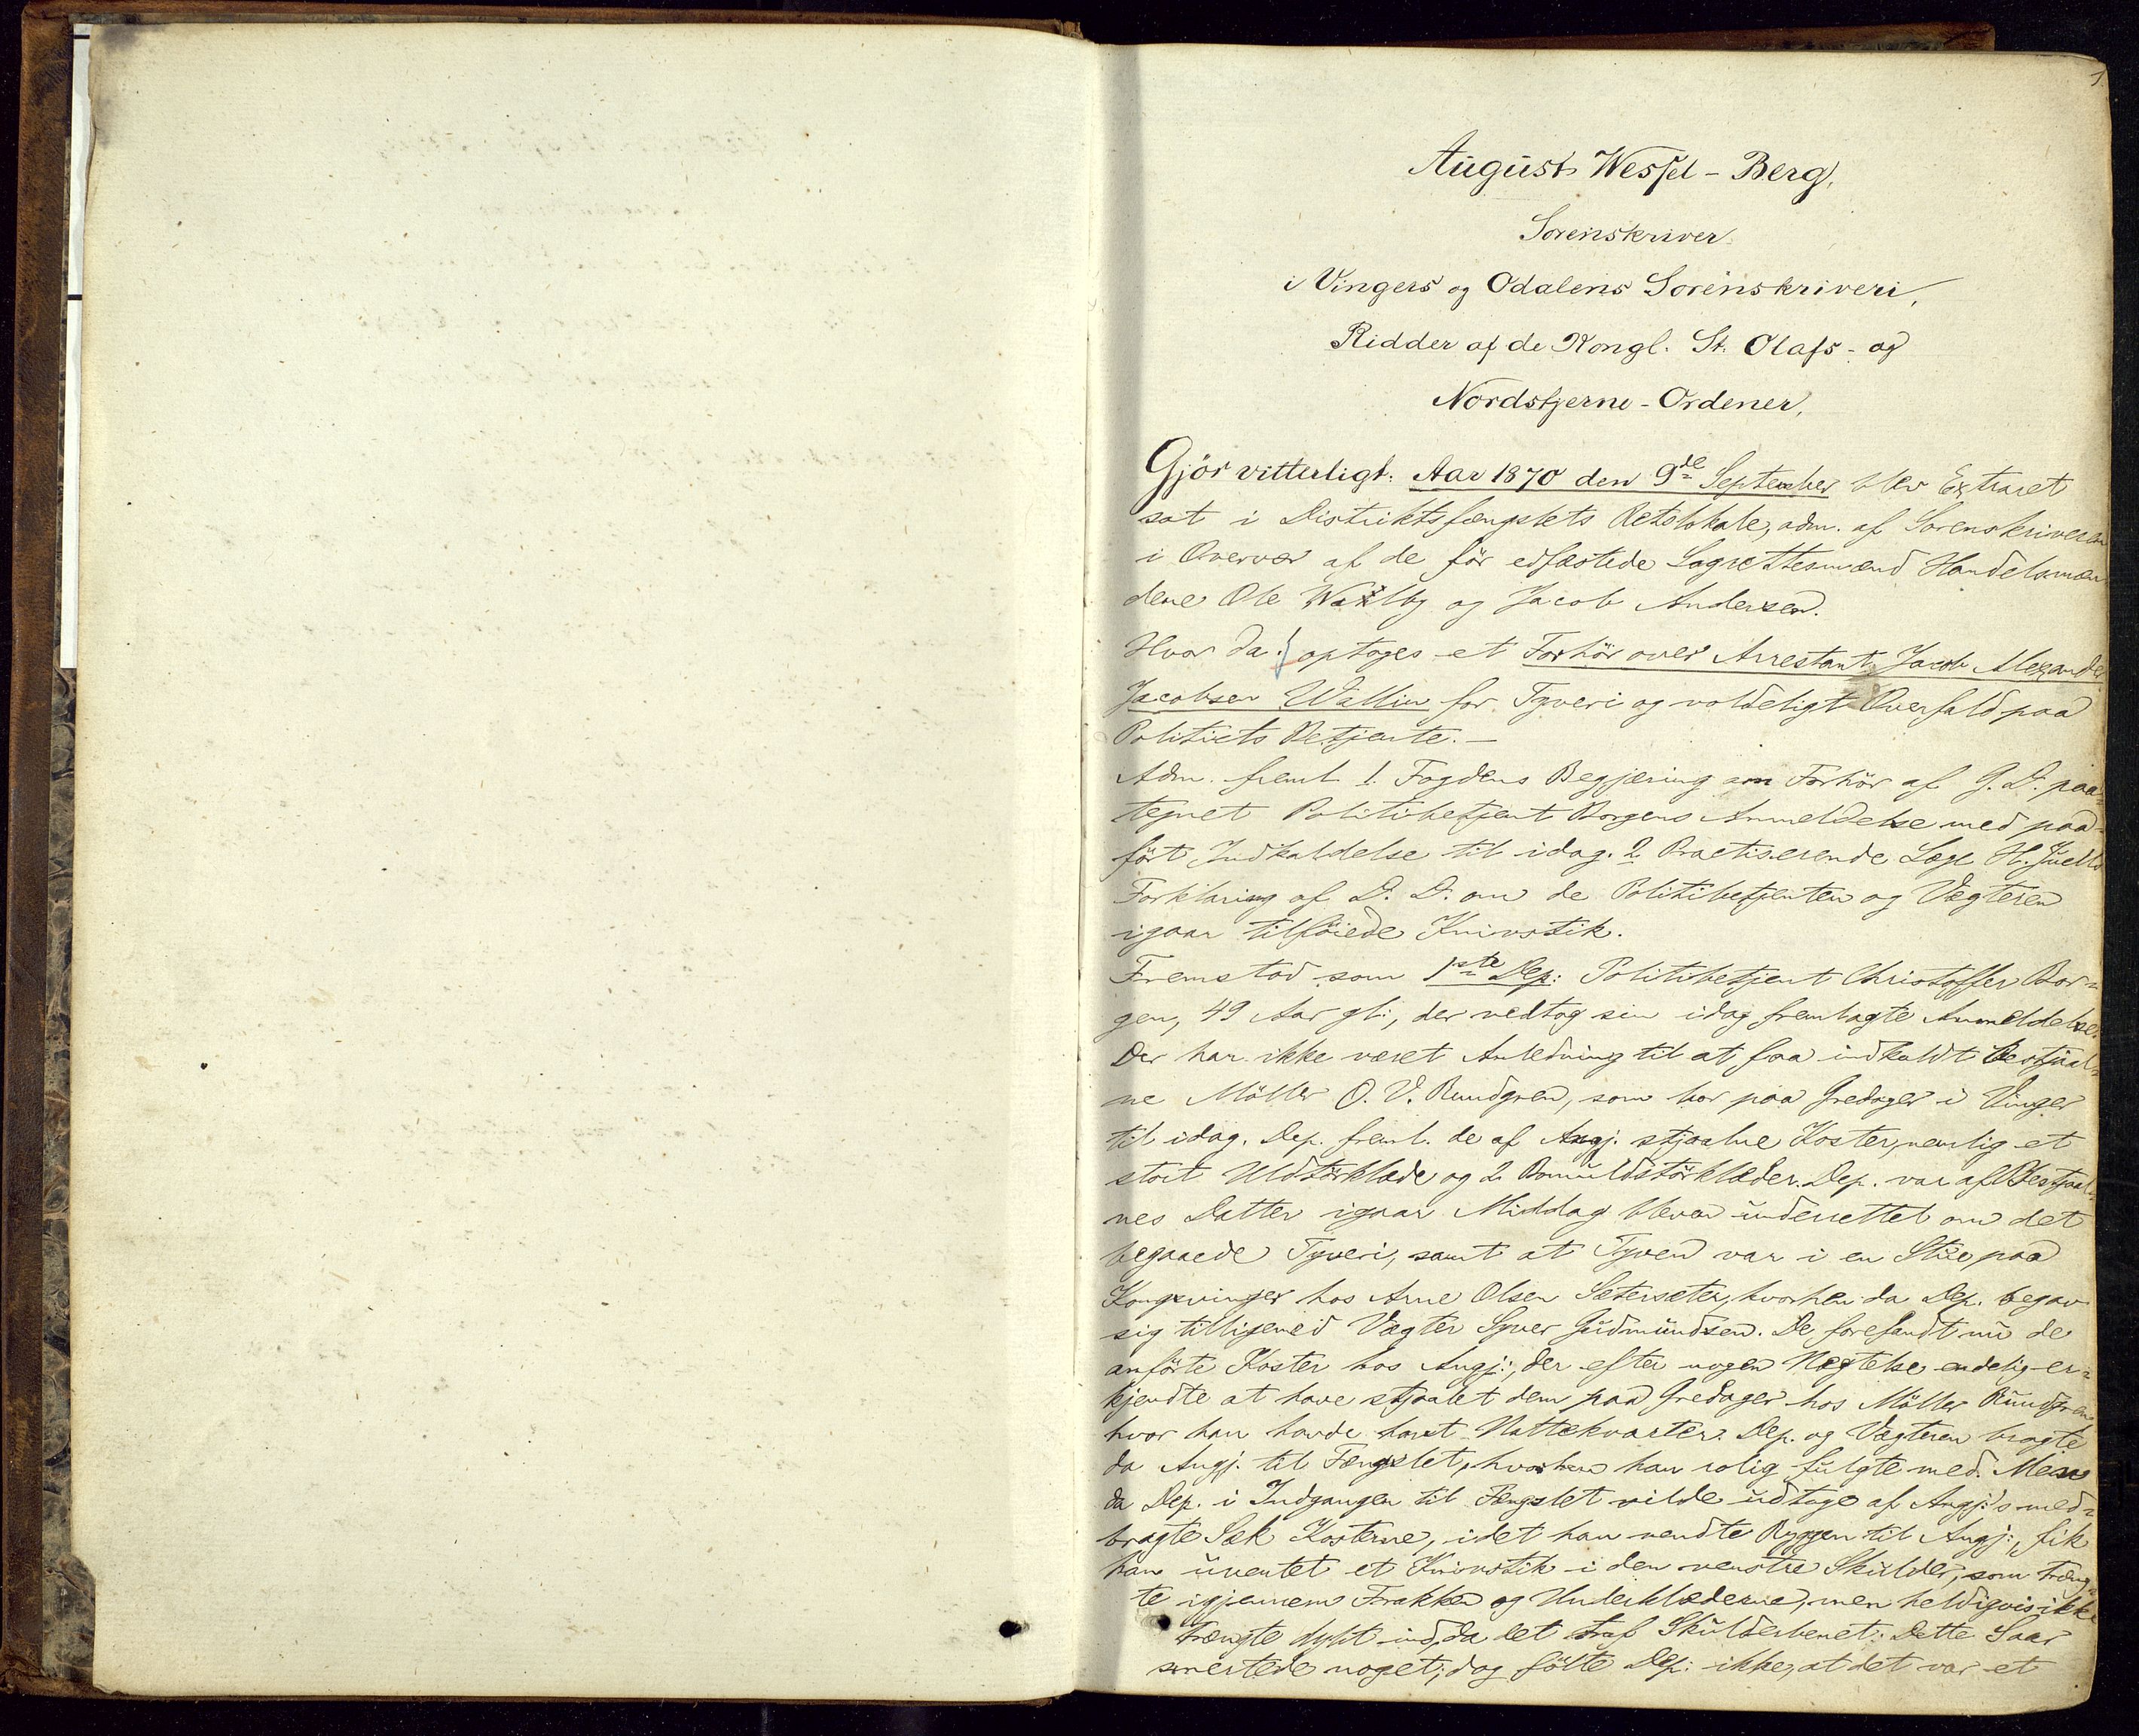 1.
August Wessel-Berg,
Sorenskriver
i Vingers og Odalens Sorenskriveri,
Ridder af de Kongl. St. Olafs- og
Nordstjerne-Ordener,
Gjör vitterligt: Aar 1870 den 9de September blev Extraret
sat i Distriktsfængslets Retslokale, adm. af Sorenskriveren
i Overvær af de før edfæstede Lagrettesmænd Handelsmæn
dene Ole Walby og Jacob Andersen.
Hvor da: optoges et Forhör over Arrestant Jacob Alexander
Jacobsen Wallin for Tyveri og voldeligt Overfald paa
Politiets Betjente. —
Adm. freml. 1. Fogdens Begjæring om Forhör af G. D. paa-
tegnet Politibetjent Borgens Anmeldelse med paa-
fört Indkaldelse til idag. 2 Practiserende Læge H. Juells
Forklaring af D. D. om de Politibetjenten og Vægteren
igaar tilföiede Knivstik.
Fremstod som 1ste Dep: Politibetjent Christoffer Bor-
gen, 49 Aar gl:, der vedtog sin idag fremlagte Anmeldelse.
Der har ikke været Anledning til at faa indkaldt Bestjaal-
ne Möller O. V. Rundgren, som bor paa Gredager i Vinger
til idag. Dep. freml. de af Angj. stjaalne Koster, nemlig et
stort Uldtörklæde og 2 Bomuldstörklæder. Dep. var af Bestjaal-
nes Datter igaar Middag bleven underrettet om det
begaaede Tyveri, samt at Tyven var i en Stue paa
Kongsvinger hos Arne Olsen Sætersæter, hvorhen da Dep. begav
sig tilligemed Vægter Syver Gudmundsen. De forefandt nu de
anförte Koster hos Angj:, der efter nogen Nægtelse endelig er-
kjendte at have stjaalet dem paa Gredager hos Möller Rundgren,
hvor han havde havt Nattekvarter. Dep. og Vægteren bragte
da Angj. til Fængslet, hvorhen han rolig fulgte med. Men
da Dep. i Indgangen til Fængslet vilde udtage af Angj:s med-
bragte Sæk Kosterne, idet han vendte Ryggen til Angj:, fik
han uventet et Knivstik i den venstre Skulder, som træng-
te igjennem Frakken og Underklæderne, men heldigvis ikke
trængte dybt ind, da det traf Skulderbenet. Dette Saar
smertede noget; dog fölte Dep: ikke, at det var et